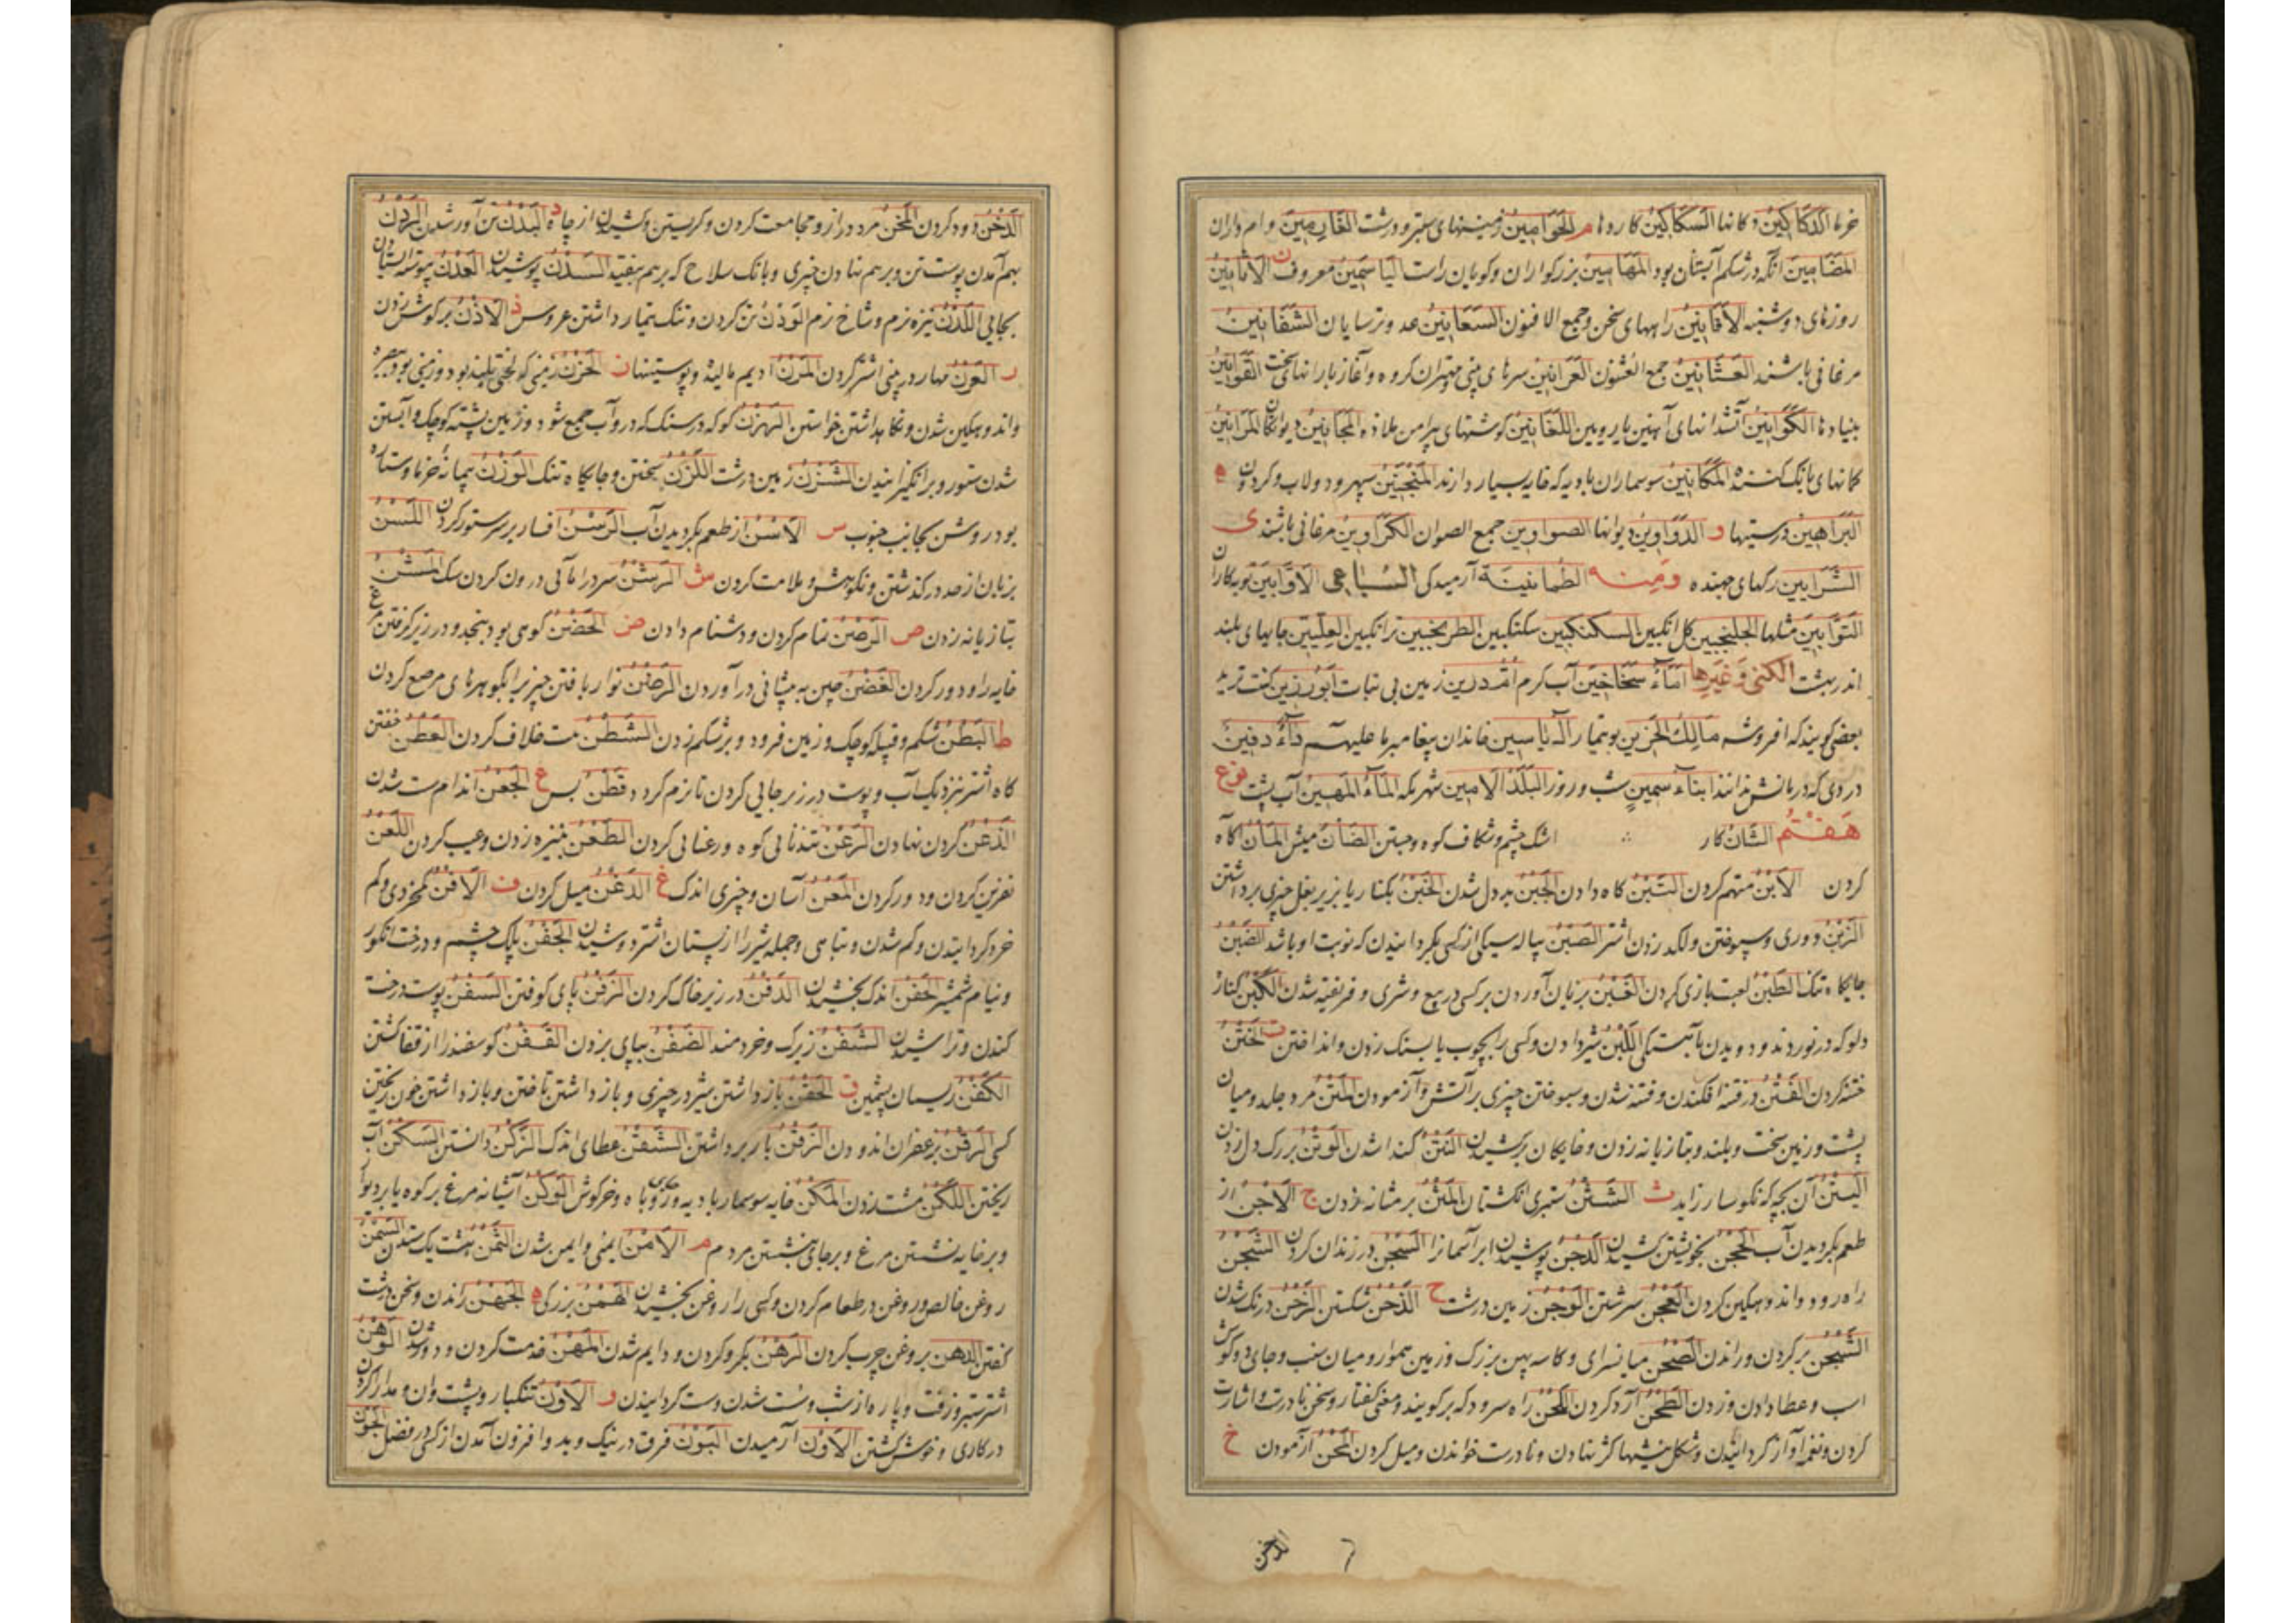 خرما الدَّكَاكِينُ دکانها السَّكَاكِينُ کاردها م الخَوَامِينُ زمینهای ستبر و درشت الغَارِمِينَ وام داران
المَضَامِينَ آنکه در شکم آبستان بود المَهَامِينُ بزرکواران و کویان راست الیَاسَمِينُ معروف ن الأثَانِينُ
روزهای دوشنبه الأفَانِينُ راههای سخن و جمع الافنون السَّعَانِينُ عید ترسایان الشَّفَانِينُ
مرغانی باشند العَثَانِينُ جمع العُثنون العَرَانِينُ سرهای بینی و مهتران کروه و آغاز بارانهای سخت القَوَانِينُ
بنیادها الكَوَانِينُ آتشدانهای آهنین یا رویین اللغَانِينُ کوشتهای پیرامن ملازه المَجَانِينُ دیوانکان المَرَانِينُ
کمانهای بانک کننده المَكَانِينُ سوسماران بادیه که خایه بسیار دارند المَنْجَنِينُ سپهر و دولاب و کردون ه
البَرَاهِينُ درستیها و الدَّوَاوِينُ دیوانها الصواوين جمع الصوان الكَرَاوِينُ مرغانی باشند ی
الشَّرَايِين رکهای جهنده وَمِنه الطمانينَة آرمیدکی السُّبَاعی الأوَّابِينَ توبه کاران
التَّوَّابِينَ مثلها الجلنجبين کل انکبین السكنكبين سکنکبین الطرنجبين ترانکبین العِلِّيِّينَ جایهای بلند
اندر بهشت الكنى وَغيرها مَاءٌ سَخَاخِين آب کرم اُمّ درين زمین بی نبات ابُو رَزِين کنت ترید
بعضی کویند که افروشه مَالِكُ الحَزِين بوتیمار آل يَاسِين خاندان پیغامبر ما علیهم دَاءٌ دَفِينٌ
دردی که درمانش ندانند ابناءُ سَمِينٍ شب و روز البَلَدُ الأمِين شهر مکه المَاءُ المَهِين آب پشت نوع
هَفتُم الشَّانُ کار اشک چشم و شکاف کوه و جستن الضَأن میش المَأن آکاه
کردن الأبْنُ متهم کردن التَّبْنُ کاه دادن الجُبْنُ بددل شدن الخَبْنُ بکنار یا بزیر بغل چیزی برداشتن
الزَبْنُ دوری و سپوختن و لکد زدن اشتر الصَبْنُ پیاله سیکی از کسی بکردانیدن که نوبت او باشد الضَبْنُ
جایکاه تنک الطَبْنُ لعبت بازی کردن الغَبْنُ بزیان آوردن بر کسی در بیع و شری و فریفته شدن الكَبْنُ کنار
دلو که در نوردند و دویدن بآهستکی اللَبْنُ شیر دادن و کسی را بچوب یا بسنک زدن و انداختن ت الخَتْنُ
ختنه کردن الفَتْنُ در فتنه افکندن و فتنه شدن و سوختن چیزی بر آتش و آزمودن المَتْنُ مرد جلد و میان
پشت و زمین سخت و بلند و بتازیانه زدن و خایکان برکشیدن النَتْنُ کنداشدن الوَتْنُ بر رک دل زدن
اليَتْنُ آن بچه که نکوسار زاید ث الشَثْنُ ستبری انکشتان المَثْنُ بر مثانه زدن ج الأجْنُ از
طعم بکردیدن آب الحَجْنُ بخویشتن کشیدن الدَجْنُ پوشیدن ابر آسمانرا السَجْنُ در زندان کردن الشَجْنُ
راه رود و اندوهکین کردن العَجْنُ سرشتن الوَجْنُ زمین درشت ح الذَحْنُ شکستن الزَحْنُ درنک شدن
الشَحْنُ پر کردن و راندن الصَحْنُ میانسرای و کاسه پهن بزرک و زمین هموار و میان سنب و جای دو کوش
اسب و عطا دادن و زدن الطَحْنُ آرد کردن اللَحْنُ راه سرود که بر کویند و معنی کفتار و سخن نادرست و اشارت
کردن و نغمه آواز کردانیدن و شکل منشها کژ نهادن و نادرست خواندن و میل کردن المَحْنُ آزمودن خ
الدخن
الدَّخْنُ دود کردن المَخْنُ مرد دراز و مجامعت کردن و کریستن و کشیدن از چاه د البَدْنُ تن آور شدن الرَدْنُ
بهم آمدن پوست تن و بر هم نهادن چیزی و بانک سلاح که بر هم بیفتد السَدْنُ پوشیدن العَدْنُ پیوسته ایستادن
بجایی اللَدْنُ نیزه نرم و شاخ نرم الوَدْنُ تر کردن و نیک تیمار داشتن عروس ذ الأذْنُ بر کوش زدن
ر العَرْنُ مهار در بینی اشتر کردن المَرْنُ ادیم مالیده و پوستینها ز الحَزْنُ زمینی که لختی بلند بود
واندوهکین شدن و نکاهداشتن خواستن الهَزْنُ کوکه در سنک که درو آب جمع شود و زمین پشته کوچک و آبستن
شدن ستور و برانکیزانیدن الشَزْنُ زمین درشت اللَزْنُ سختن و جایکاه تنک الوَزْنُ پیمانه خرما و ستاره
بود روشن بجانب جنوب س الأسْنُ از طعم بکردیدن آب الرَسْنُ افسار بر سر ستور کردن اللَسْنُ
بزبان از حد در کذشتن و نکوهش و ملامت کردن ش الرَشْنُ سر در اناء آبی درون کردن سک المَشْنُ
بتازیانه زدن ص الرَصْنُ تمام کردن و دشنام دادن ض الحَضْنُ کوهی بود بنجد و در زیر کرفتن مرغ
خایه را و دور کردن الغَضْنُ چین به پیشانی در آوردن الرَضْنُ نوار بافتن چیز برا بکوهرهای مرصع کردن
ط البَطْنُ شکم و قبیله کوچک و زمین فرود و بر شکم زدن الشَطْنُ مت خلاف کردن العَطْنُ خفتن
کاه اشتر نزدیک آب و پوست در زیر جایی کردن تا نرم کردد قَطْنُ بس ع الجَعْنُ اندام سست شدن
الذَعْنُ کردن نهادن الرَعْنُ تندنائی کوه و رعنائی کردن الطَعْنُ بنیزه زدن و عیب کردن اللَعْنُ
نفرین کردن و دور کردن المَعْنُ آسان و چیزی اندک غ الدَغْنُ میل کردن ف الأفْنُ کم خردی و کم
خرد کردانیدن و کم شدن و تباهی و جمله شیر را از پستان اشتر دوشیدن الجَفْنُ پلک چشم و درخت انکور
و نیام شمشیر الحَفْنُ اندک بخشیدن الدَفْنُ در زیر خاک کردن الزَفْنُ پای کوفتن السَفْنُ پوست درخت
کندن و تراشیدن الشَفْنُ زیرک و خردمند الضَفْنُ بپای بزدن القَفْنُ کوسفند را از قفا کشتن
الكَفْنُ ریسمان پشمین ق الحَقْنُ باز داشتن شیر در چیزی و باز داشتن تافتن و باز داشتن خون ریختن
کسی الرَقْنُ بزعفران اندودن الزَقْنُ بار برداشتن الشَقْنُ عطای اندک الزَكْنُ دانستن السَكْنُ آب
ریختن اللَكْنُ مشت زدن المَكْنُ خایه سوسمار بادیه و روباه و خرکوش الوَكْنُ آشیانه مرغ بر کوه یا بر دیوار
و بر خایه نشستن مرغ و بر جای نشستن مردم م الأمْنُ ایمنی و ایمن شدن الثَمْنُ هشت یک ستدن السَمْنُ
روغن خالص و روغن در طعام کردن و کسی را روغن بخشیدن الهَمْنُ بزرکی ه الجَهْنُ راندن و سخن درشت
کفتن الدَهْنُ بروغن چرب کردن الرَهْنُ بکرو کردن و دایم شدن المَهْنُ خدمت کردن و دوشیدن الوَهْنُ
اشتر ستبر و زفت و پاره از شب و سست شدن و سست کردانیدن و الأوْنُ تنکبار و پشت وان و مدارا کردن
در کاری و خوش کشتن الأوْنُ آرمیدن البَوْنُ فرق در نیک و بد و افزون آمدن از کسی در فضل الجَوْنُ